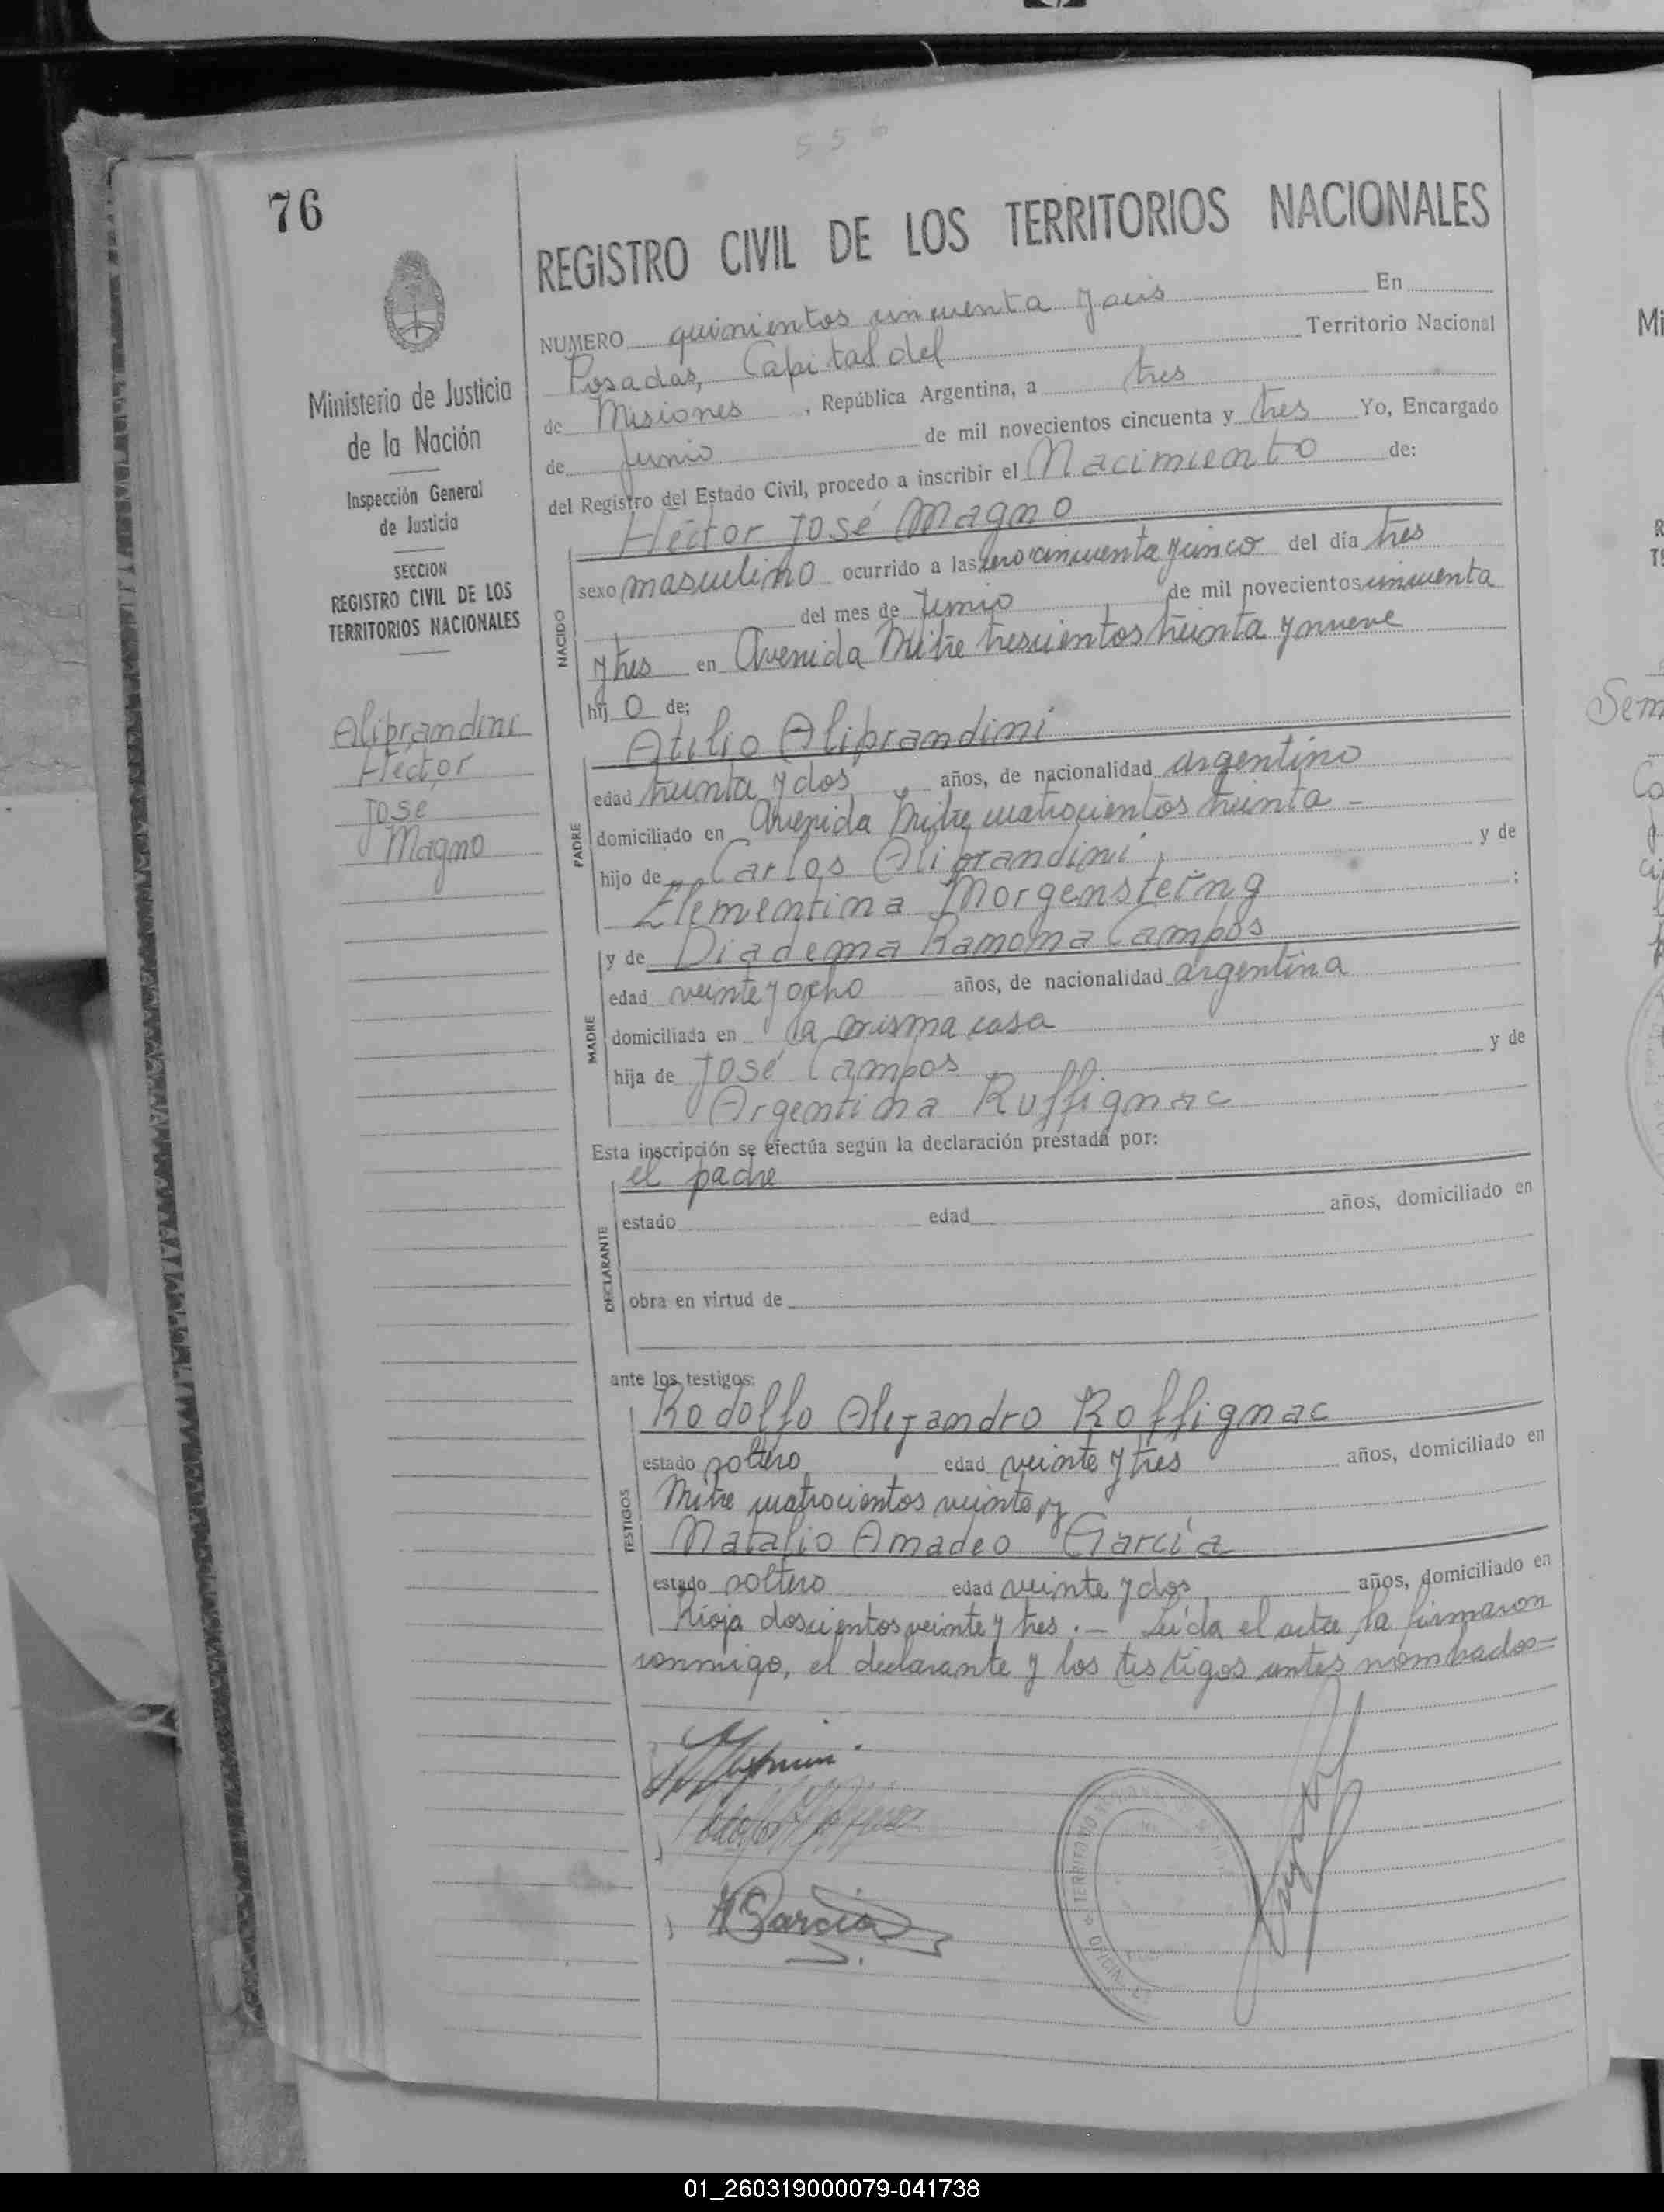 556
76
REGISTRO CIVIL DE LOS TERRITORIOS NACIONALES
Ministerio de Justicia
de la Nación
Inspección General
de Justicia
SECCION
REGISTRO CIVIL DE LOS
TERRITORIOS NACIONALES
Aliprandini
Hector
José
Magno
NUMERO quinientos cincuenta y seis En
Posadas, Capital del Territorio Nacional
de Misiones, República Argentina, a tres
de Junio de mil novecientos cincuenta y tres Yo, Encargado
del Registro del Estado Civil, procedo a inscribir el Nacimiento de:
NACIDO
Héctor José Magno
sexo masculino ocurrido a las cero cincuenta y cinco del día tres
del mes de Junio de mil novecientos cincuenta
y tres en Avenida Mitre trescientos treinta y nueve
hij o de:
PADRE
Atilio Aliprandini
edad treinta y dos años, de nacionalidad argentino
domiciliado en Avenida Mitre cuatrocientos treinta -
hijo de Carlos Aliprandini y de
Elementina Morgensterng :
MADRE
y de Diadema Ramona Campos
edad veinte y ocho años, de nacionalidad argentina
domiciliada en la misma casa
hija de José Campos y de
Argentina Ruffignac
Esta inscripción se efectúa según la declaración prestada por:
DECLARANTE
el padre
estado edad años, domiciliado en
obra en virtud de
ante los testigos:
TESTIGOS
Rodolfo Alejandro Roffignac
estado soltero edad veinte y tres años, domiciliado en
Mitre cuatrocientos veinte y
Natalio Amadeo García
estado soltero edad veinte y dos años, domiciliado en
Rioja doscientos veinte y tres .- Leída el acta, la firmaron
conmigo, el declarante y los testigos antes nombrados=
García
TERRITORIO
OFICINA
Mi
Sem
01_260319000079-041738